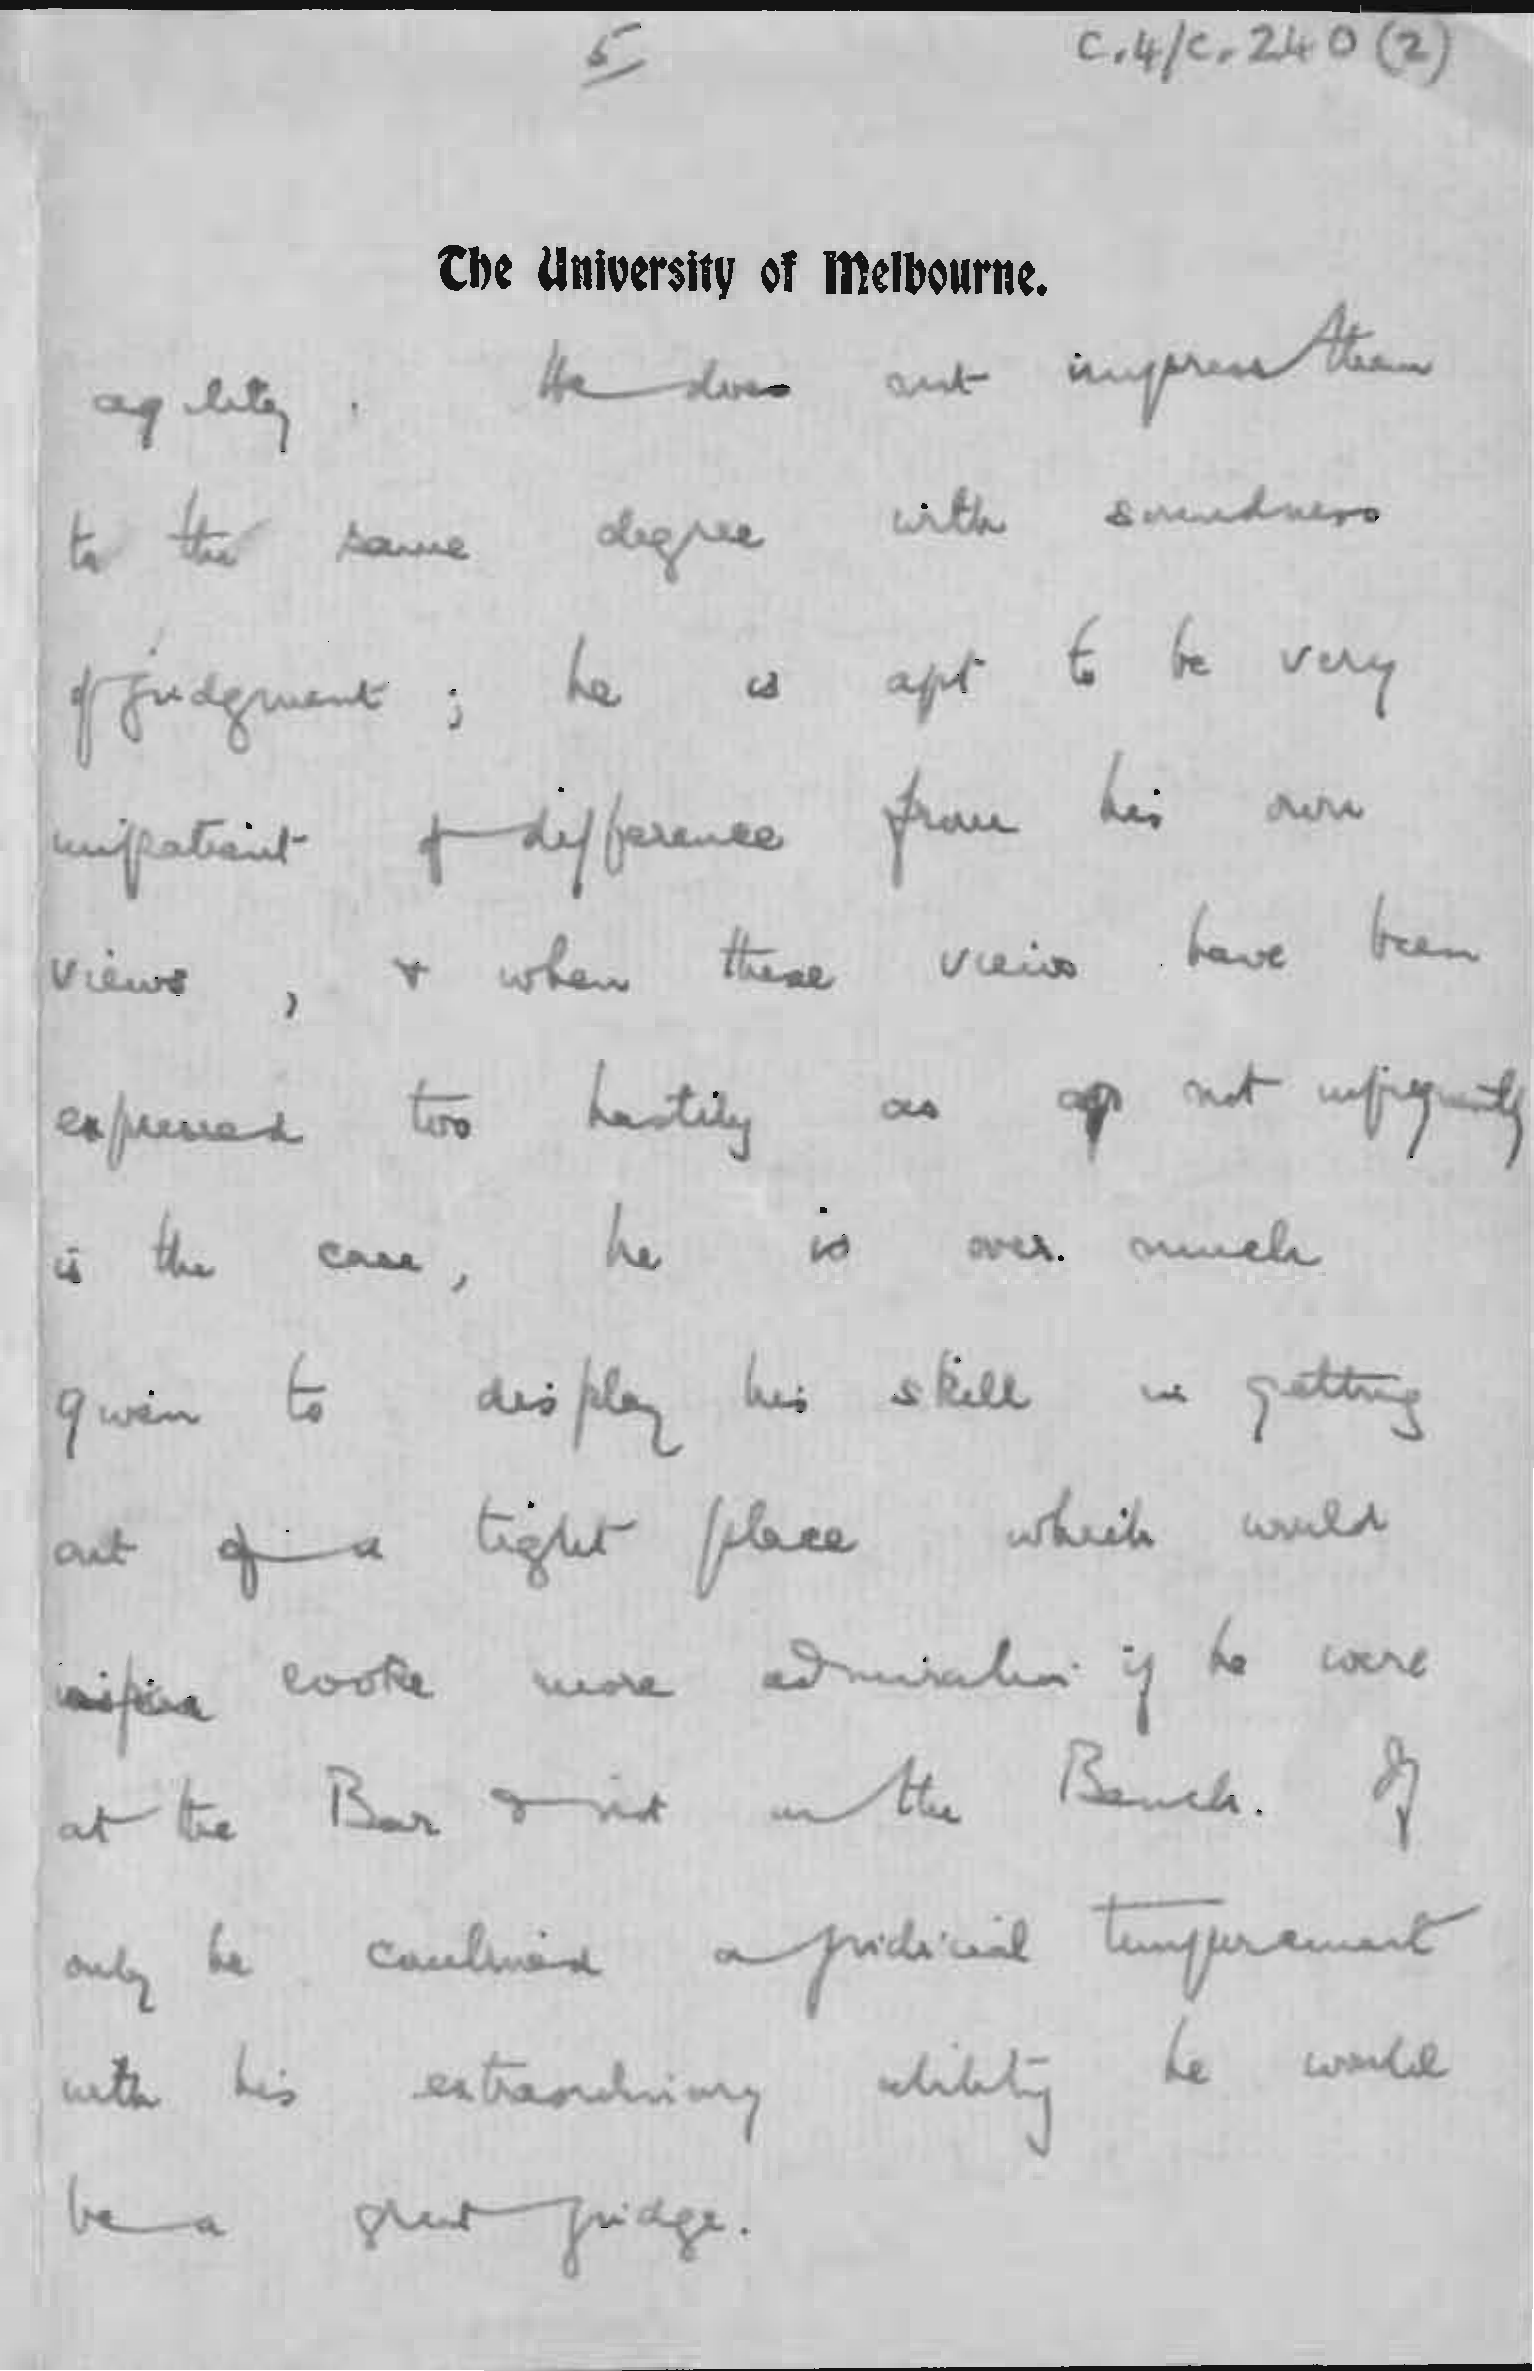 5
C.4/C.240(2)
The University of Melbourne.
agility. He does not impress them
to the same degree with soundness
of judgment; he is apt to be very
impatient of difference from his own
views, & when these views have been
expressed too hastily as not infrequently
is the case, he is over much
given to display his skill in getting
out of a tight place which would
evoke more admiration if he were
at the Bar & not on the Bench. If
only he combined a judicial temperament
with his extraordinary ability he would
be a great judge.